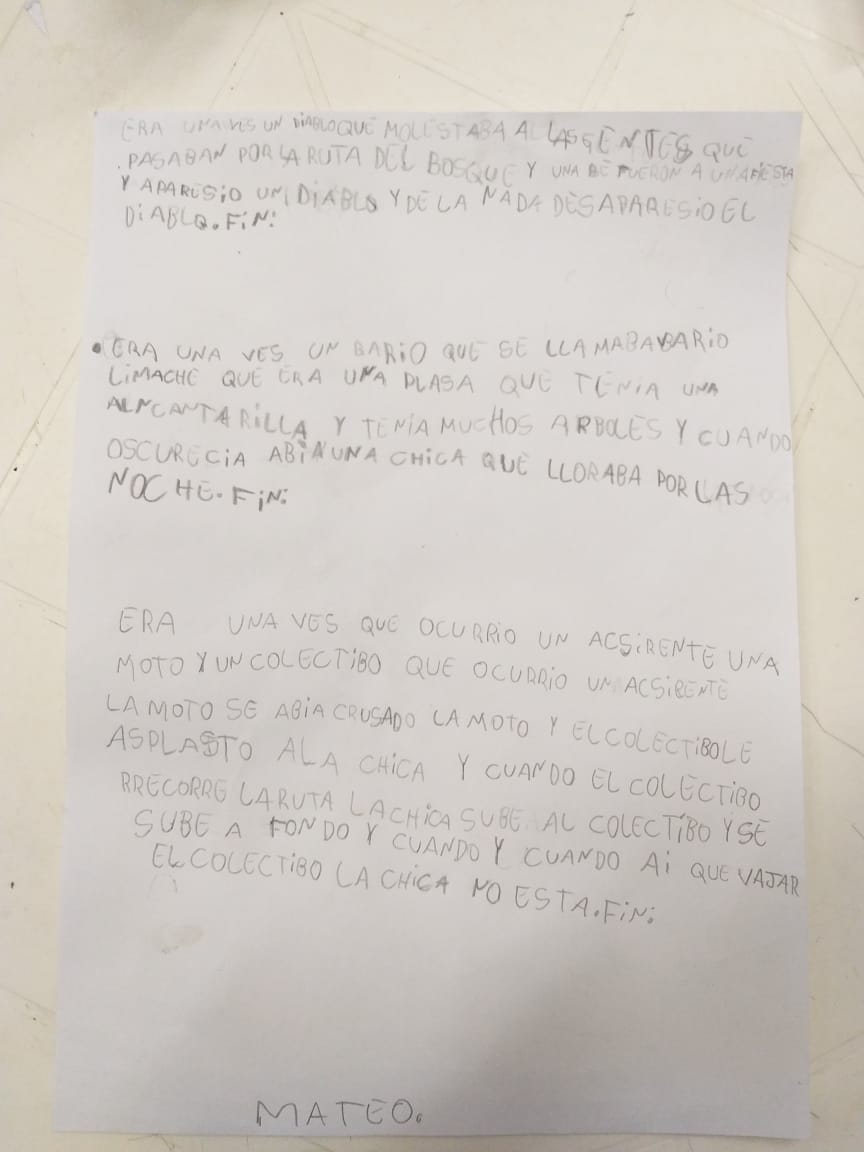 ERA UNA VES UN DIABLO QUE MOLESTABA AL LAS GENTES QUE
PASABAN POR LA RUTA DEL BOSQUE Y UNA BE FUERON A UNA FIESTA
Y APARESIO UN DIABLO Y DE LA NADA DESAPARESIO EL
DIABLO. FIN:
• ERA UNA VES UN BARIO QUE SE LLAMABA BARIO
LIMACHE QUE ERA UNA PLASA QUE TENIA UNA
ALNCANTARILLA Y TENIA MUCHOS ARBOLES Y CUANDO
OSCURECIA ABIA UNA CHICA QUE LLORABA POR LAS
NOCHE. FIN:
ERA UNA VES QUE OCURRIO UN ACSIRENTE UNA
MOTO Y UN COLECTIBO QUE OCURRIO UN ACSIRENTE
LA MOTO SE ABIA CRUSADO LA MOTO Y EL COLECTIBO LE
ASPLASTO ALA CHICA Y CUANDO EL COLECTIBO
RRECORRE LA RUTA LA CHICA SUBE AL COLECTIBO Y SE
SUBE A FONDO Y CUANDO Y CUANDO AI QUE VAJAR
EL COLECTIBO LA CHICA NO ESTA. FIN:
MATEO.